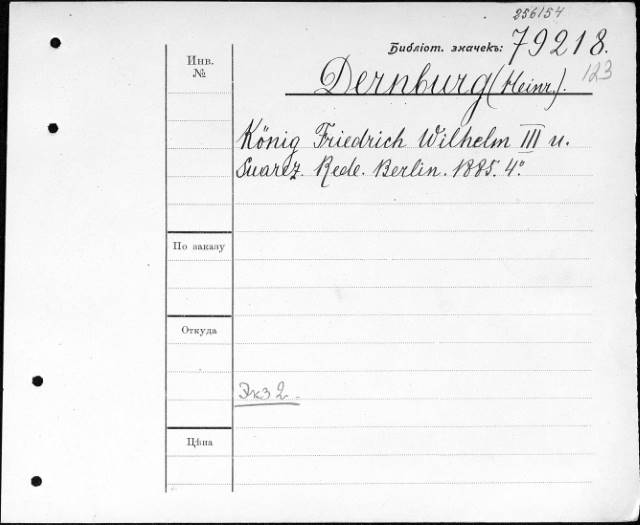 256154
Библіот. значекъ: 79218.
Инв. №
123
Dernburg (Heinr.).
König Friedrich Wilhelm III u.
Suarez. Rede. Berlin. 1885. 4°.
По заказу
Откуда
Экз 2.
Цѣна